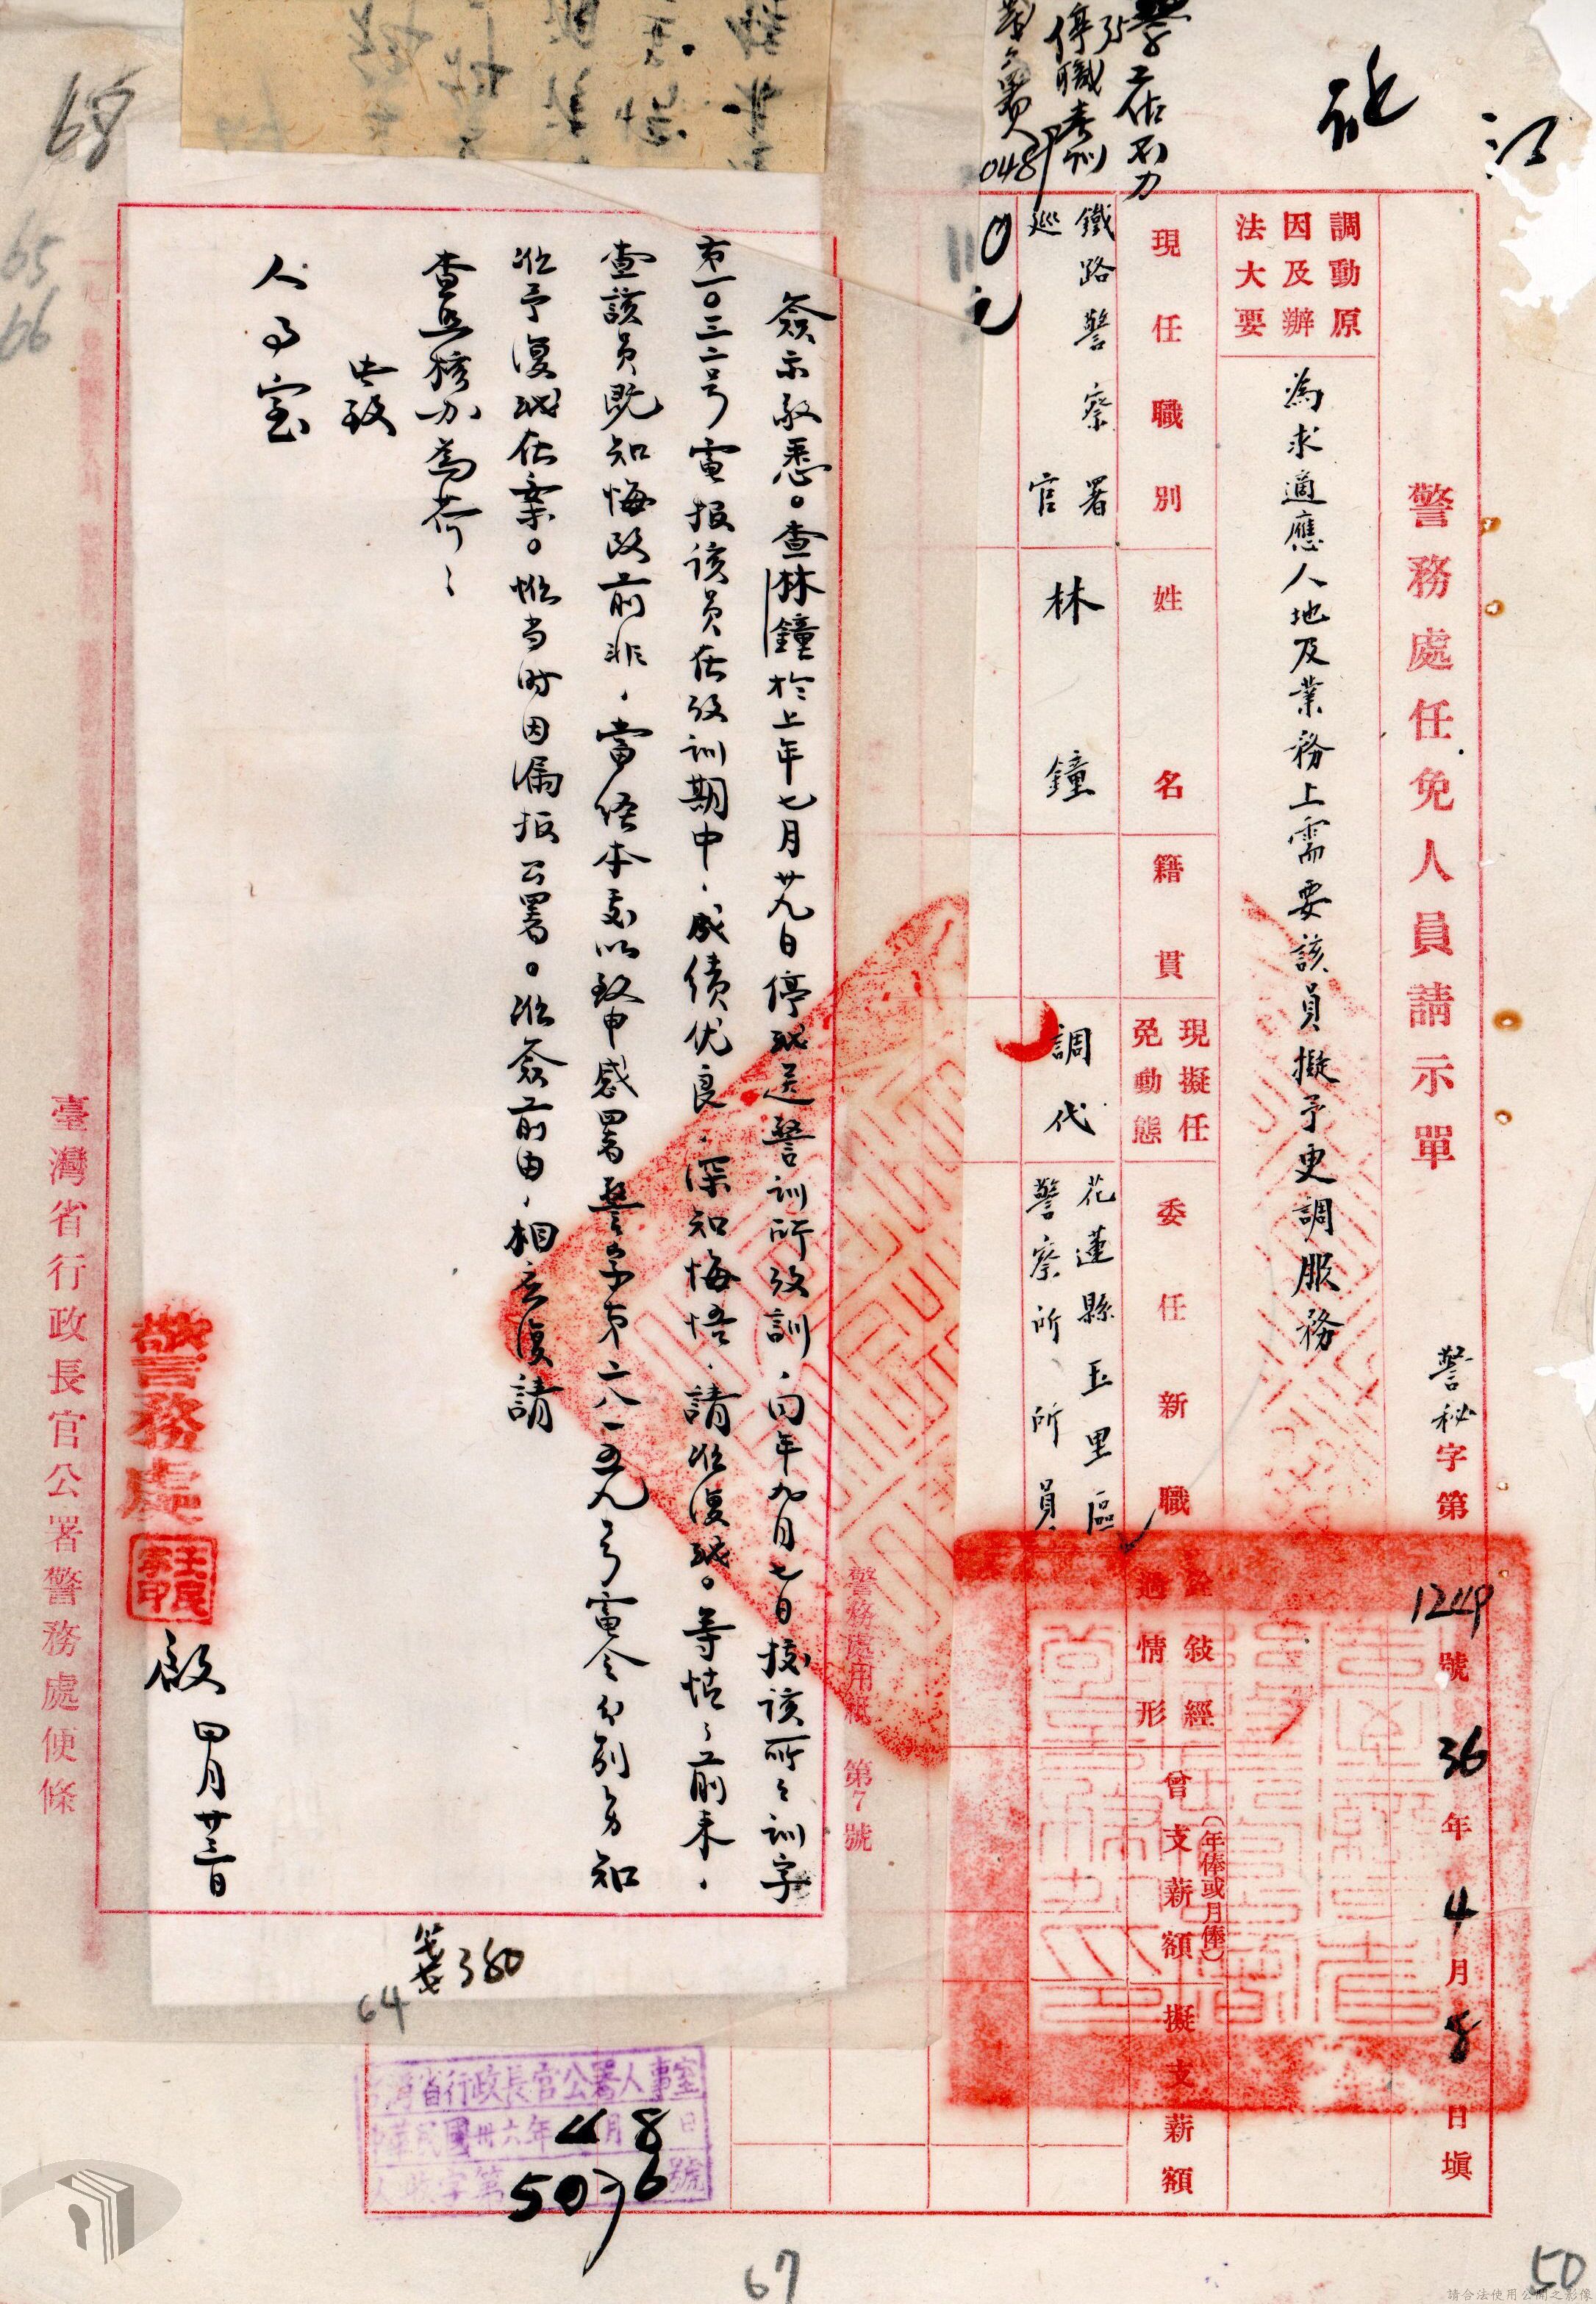 警務處任免人員請示單
警秘字第1249號36年4月8日填
調動原因及辦法大要
為求適應人地及業務上需要該員擬予更調服務
現任職別
姓名
籍貫
現擬任免動態
委任新職
敍經情形
曾支薪額(年俸或月俸)
擬支薪額
鐵路警察署
巡官
林鐘
調代
花蓮縣玉里區
警察所所員
工作不力
停職
警務處用紙 第7號
簽示敬悉。查林鐘於上年七月廿九日停職送警訓所改訓,同年九月七日據該所訓字
第一〇三二号電报該員在改訓期中,成績优良,深知悔悟,請准復職。等情;前来,
查該员既知悔改前非,當經本處以致申感署警字第二八一五九号電令分别知
准予復職在案。惟当时因漏报公署。准簽前由,相应復請
查照核办為荷;
此致
人事室
警務處
啟 四月廿三日
臺灣省行政長官公署警務處便條
台灣省行政長官公署人事室
中華民國卅六年4月8日
人收字第5076號
360
64
67
50
68
65
66
請合法使用公開之影像